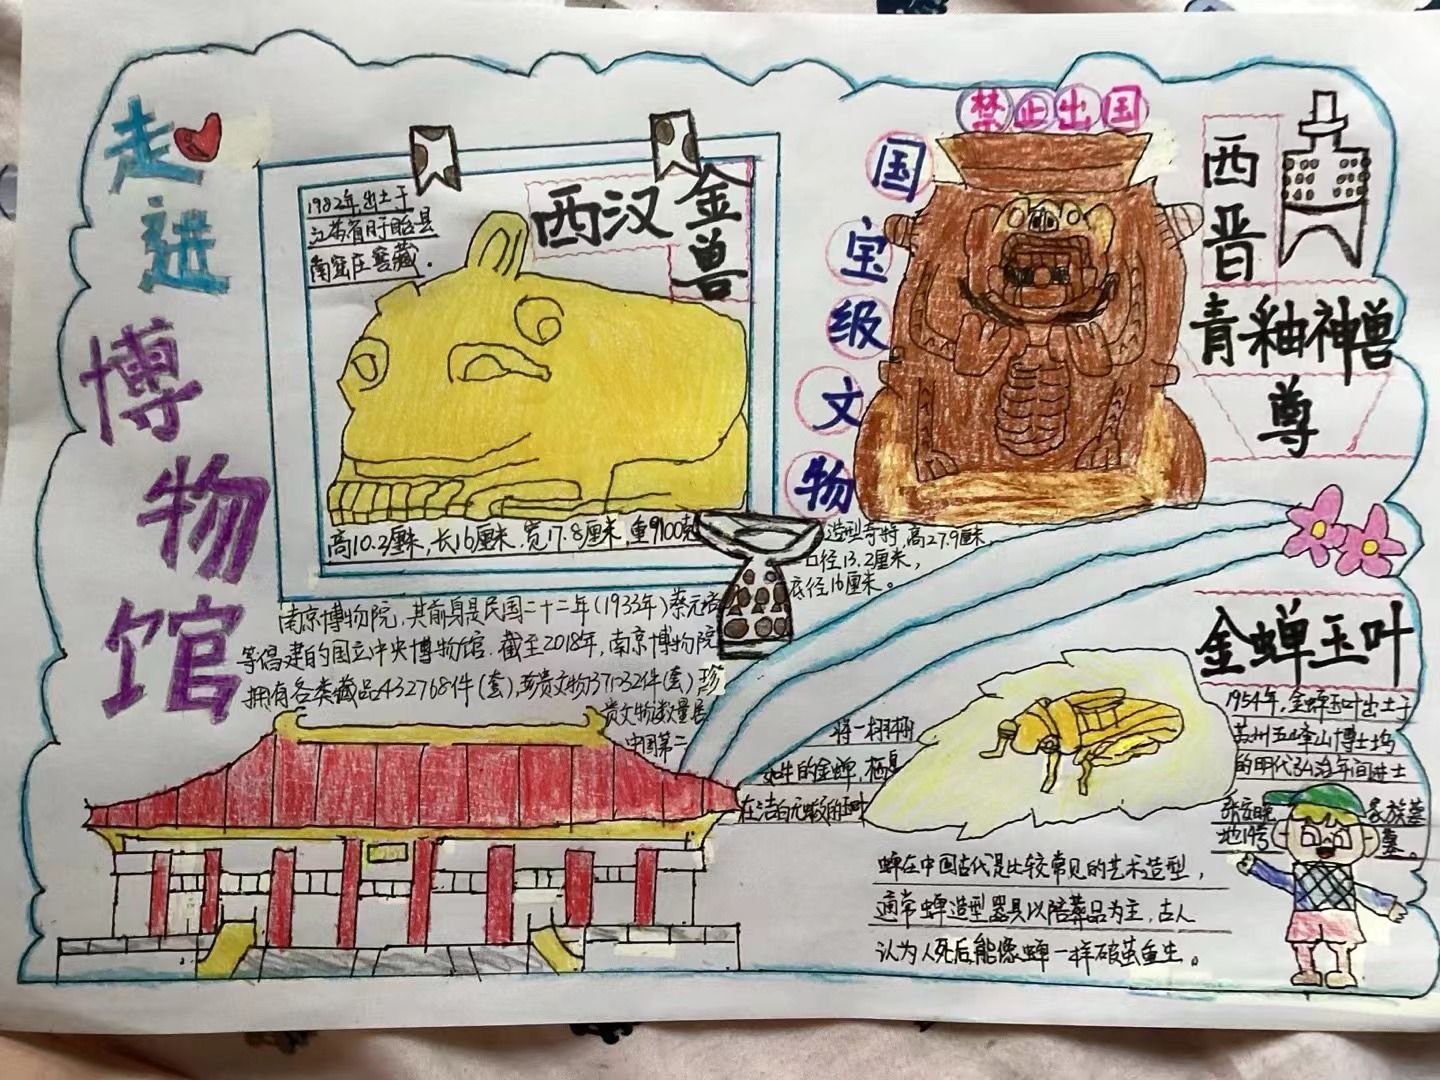 走进
博物馆
1982年出土于
江苏省盱眙县
南窑庄窖藏.
西汉金兽
高10.2厘米,长16厘米.宽17.8厘米,重9100克
禁止出国
国宝级文物
西晋
青釉神兽
尊
造型奇特,高27.9厘米,
口径13.2厘米,
底径16厘米。
南京博物院,其前身是民国二十二年(1933年)蔡元培
等倡建的国立中央博物馆.截至2018年,南京博物院
拥有各类藏品432768件(套),珍贵文物371032件(套)珍
贵文物数量居
中国第二
金蝉玉叶
1954年,金蝉玉叶出土于
苏州五峰山博士坞
的明代弘治年间进士
张安晚家族墓
地14号墓。
将一栩栩
如生的金蝉,栖息
在洁白无瑕的玉叶
蝉在中国古代是比较常见的艺术造型,
通常蝉造型器具以陪葬品为主,古人
认为人死后能像蝉一样破茧重生。